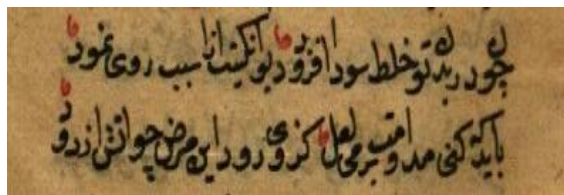 چون در بدن تو خلط سودا افزود ازان سبب روی نمود
باید که کنی مداومت بر می لعل کز وی رود این مرض چو آتش از دود